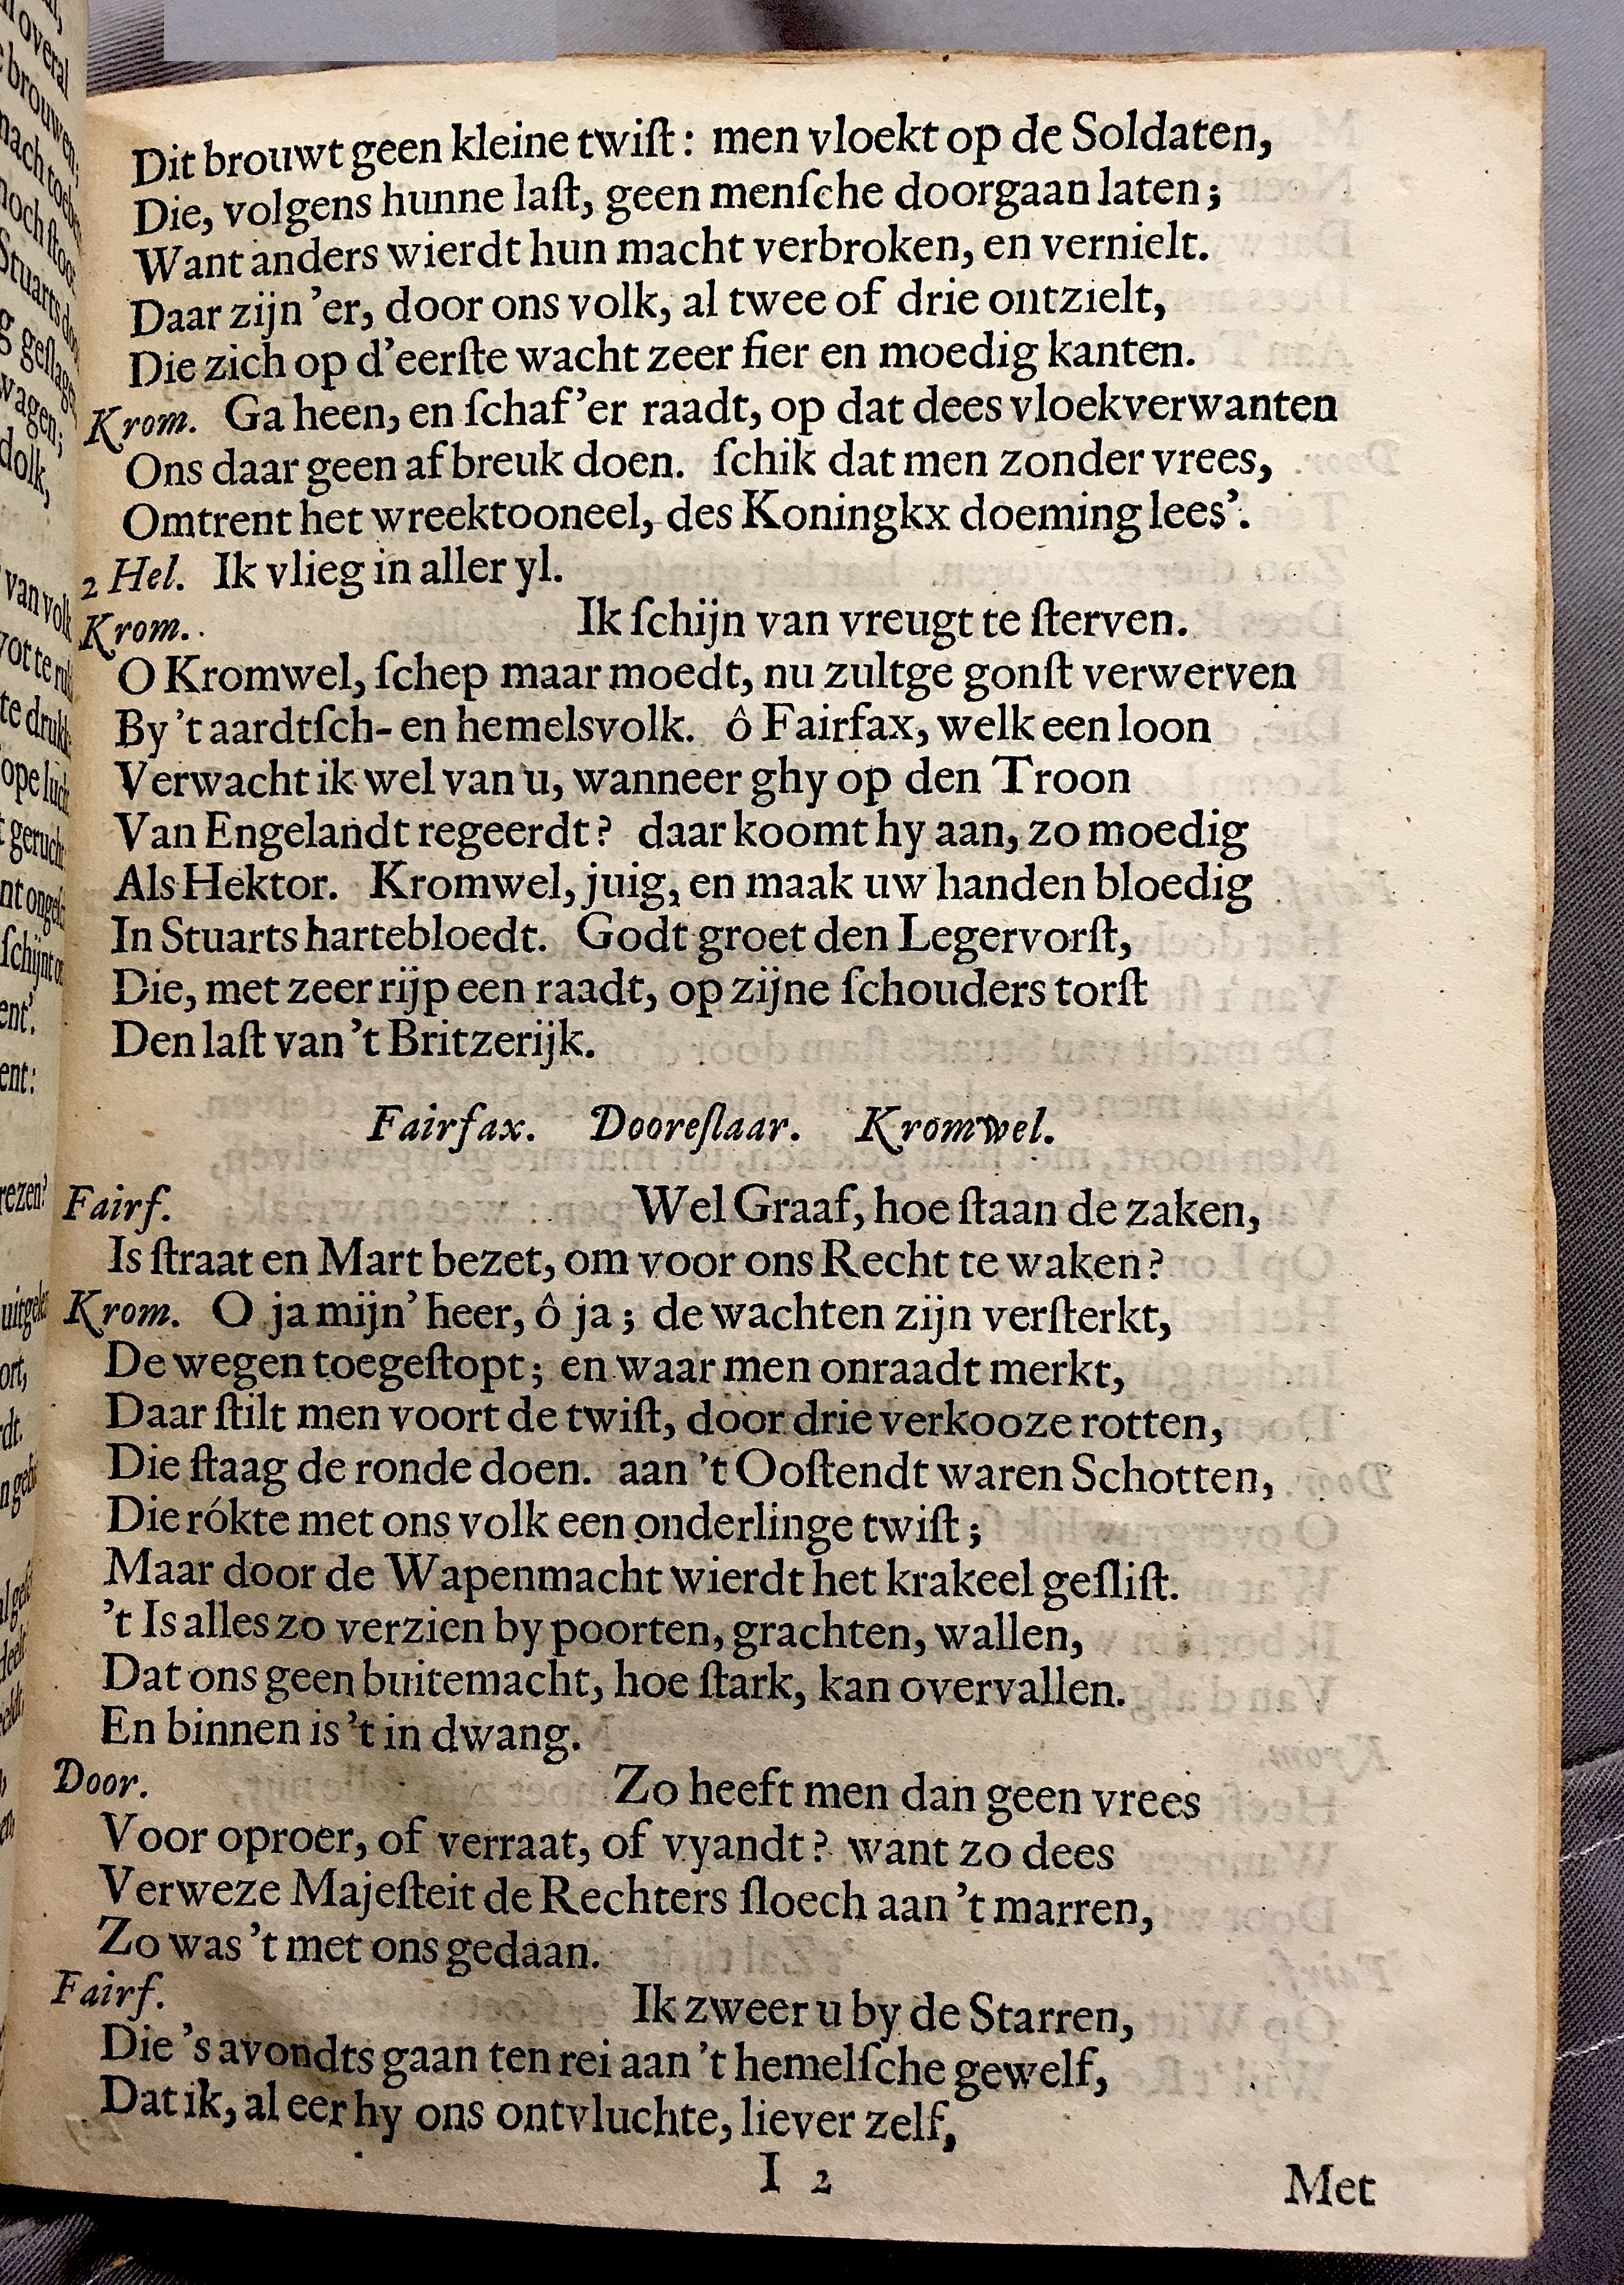 Dit brouwt geen kleine twiſt: men vloekt op de Soldaten,
Die, volgens hunne laſt, geen menſche doorgaan laten;
Want anders wierdt hun macht verbroken, en vernielt.
Daar zijn 'er, door ons volk, al twee of drie ontzielt,
Die zich op d'eerſte wacht zeer fier en moedig kanten.
Krom. Ga heen, en ſchaf 'er raadt, op dat dees vloekverwanten
Ons daar geen afbreuk doen. ſchik dat men zonder vrees,
Omtrent het wreektooneel, des Koningkx doeming lees'.
2 Hel. Ik vlieg in aller yl.
Krom. Ik ſchijn van vreugt te ſterven.
O Kromwel, ſchep maar moedt, nu zultge gonſt verwerven
By 't aardtſch- en hemelsvolk. ô Fairfax, welk een loon
Verwacht ik wel van u, wanneer ghy op den Troon
Van Engelandt regeerdt? daar koomt hy aan, zo moedig
Als Hektor. Kromwel, juig, en maak uw handen bloedig
In Stuarts hartebloedt. Godt groet den Legervorſt,
Die, met zeer rijp een raadt, op zijne ſchouders torſt
Den laſt van 't Britzerijk.
Fairfax. Dooreſlaar. Kromwel.
Fairf. Wel Graaf, hoe ſtaan de zaken,
Is ſtraat en Mart bezet, om voor ons Recht te waken?
Krom. O ja mijn' heer, ô ja; de wachten zijn verſterkt,
De wegen toegeſtopt; en waar men onraadt merkt,
Daar ſtilt men voort de twiſt, door drie verkooze rotten,
Die ſtaag de ronde doen. aan 't Ooſtendt waren Schotten,
Die rókte met ons volk een onderlinge twiſt;
Maar door de Wapenmacht wierdt het krakeel geſliſt.
't Is alles zo verzien by poorten, grachten, wallen,
Dat ons geen buitemacht, hoe ſtark, kan overvallen.
En binnen is 't in dwang.
Door. Zo heeft men dan geen vrees
Voor oproer, of verraat, of vyandt? want zo dees
Verweze Majeſteit de Rechters ſloech aan 't marren,
Zo was 't met ons gedaan.
Fairf. Ik zweer u by de Starren,
Die 's avondts gaan ten rei aan 't hemelſche gewelf,
Dat ik, al eer hy ons ontvluchte, liever zelf,
I 2 Met